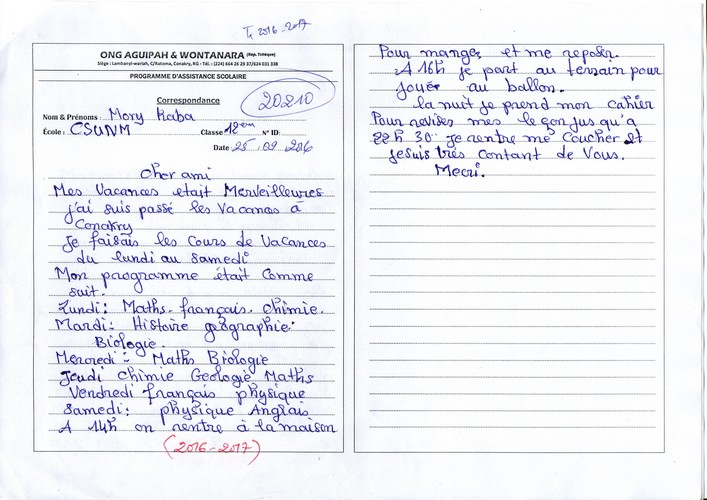 T1 2016-2017
ONG AGUIPAH & WONTANARA (Rép. Tchèque)
Siège : Lambanyi-wariah, C/Ratoma, Conakry, RG - Tél : (224) 664 26 29 37/624 031 338
PROGRAMME D'ASSISTANCE SCOLAIRE
Correspondance
20210
Nom & Prénoms : Mory Kaba
École : CSUNM Classe 12em N° ID:
Date 25 09 2016
Cher ami
Mes Vacances etait Merveilleures
j'ai suis passé les Vacances à
Conakry
Je faisais les Cours de Vacances
du lundi au Samedi
Mon programme était Comme
suit.
Lundi: Maths. français. chimie.
Mardi: Histoire géographie.
Biologie.
Mercredi: Maths Biologie
Jeudi chimie Geologie Maths
Vendredi français physique
Samedi: physique Anglais
A 14h on rentre à la maison
(2016-2017)
Pour manger et me reposer.
A 16h je part au terrain pour
jouer au ballon.
la nuit je prend mon cahier
Pour revises mes leçon jus qu'a
22h 30 je rentre me coucher et
je suis très contant de Vous.
Mecri.